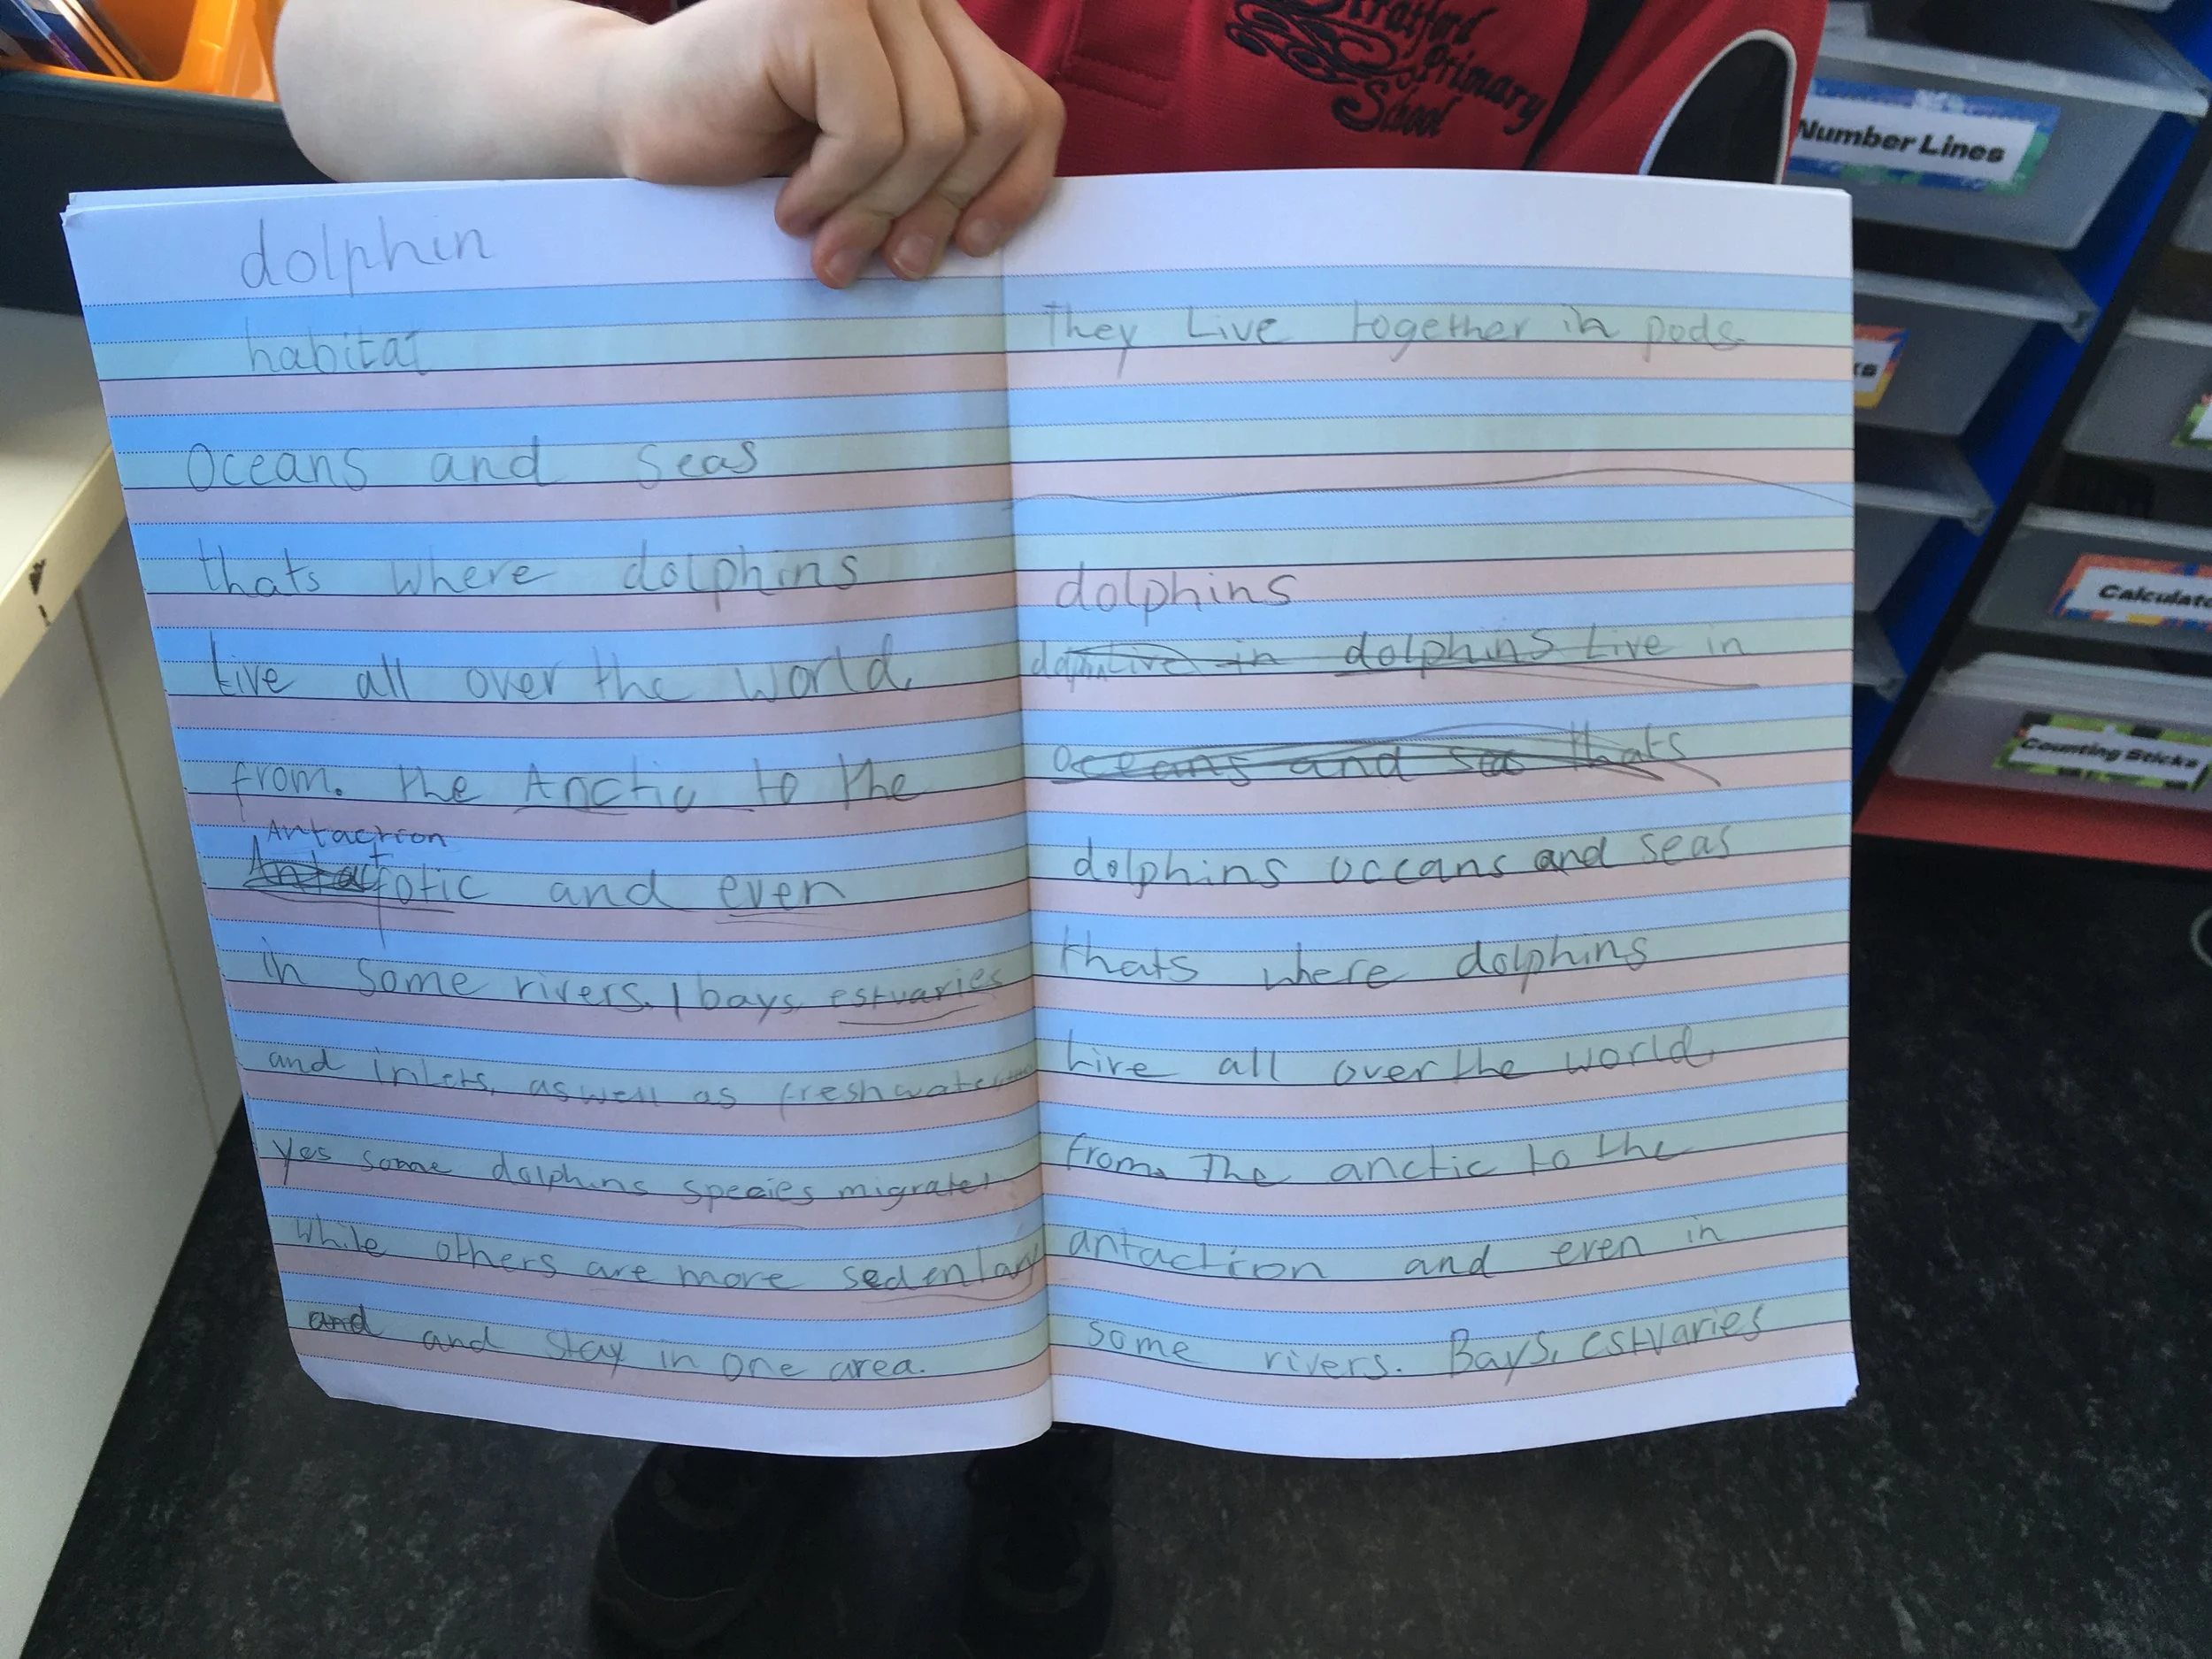 Stratford
Primary
School
Number Lines
ks
Calculato
Counting Sticks
dolphin
habitat
Oceans and seas
thats where dolphins
Live all over the world.
from. the Anctic to the
Antaction
Antactotic and even
in some rivers. / bays. estuaries
and inlets, aswell as freshwater
Yes some dolphins species migrate!
While others are more sedentary
and and stay in one area.
They Live together in pods.
dolphins
Live in dolphins Live in
Oceans and sea thats
dolphins occans and seas
thats where dolphins
Live all over the world.
from. The anctic to the
antaction and even in
some rivers. Bays, estuaries